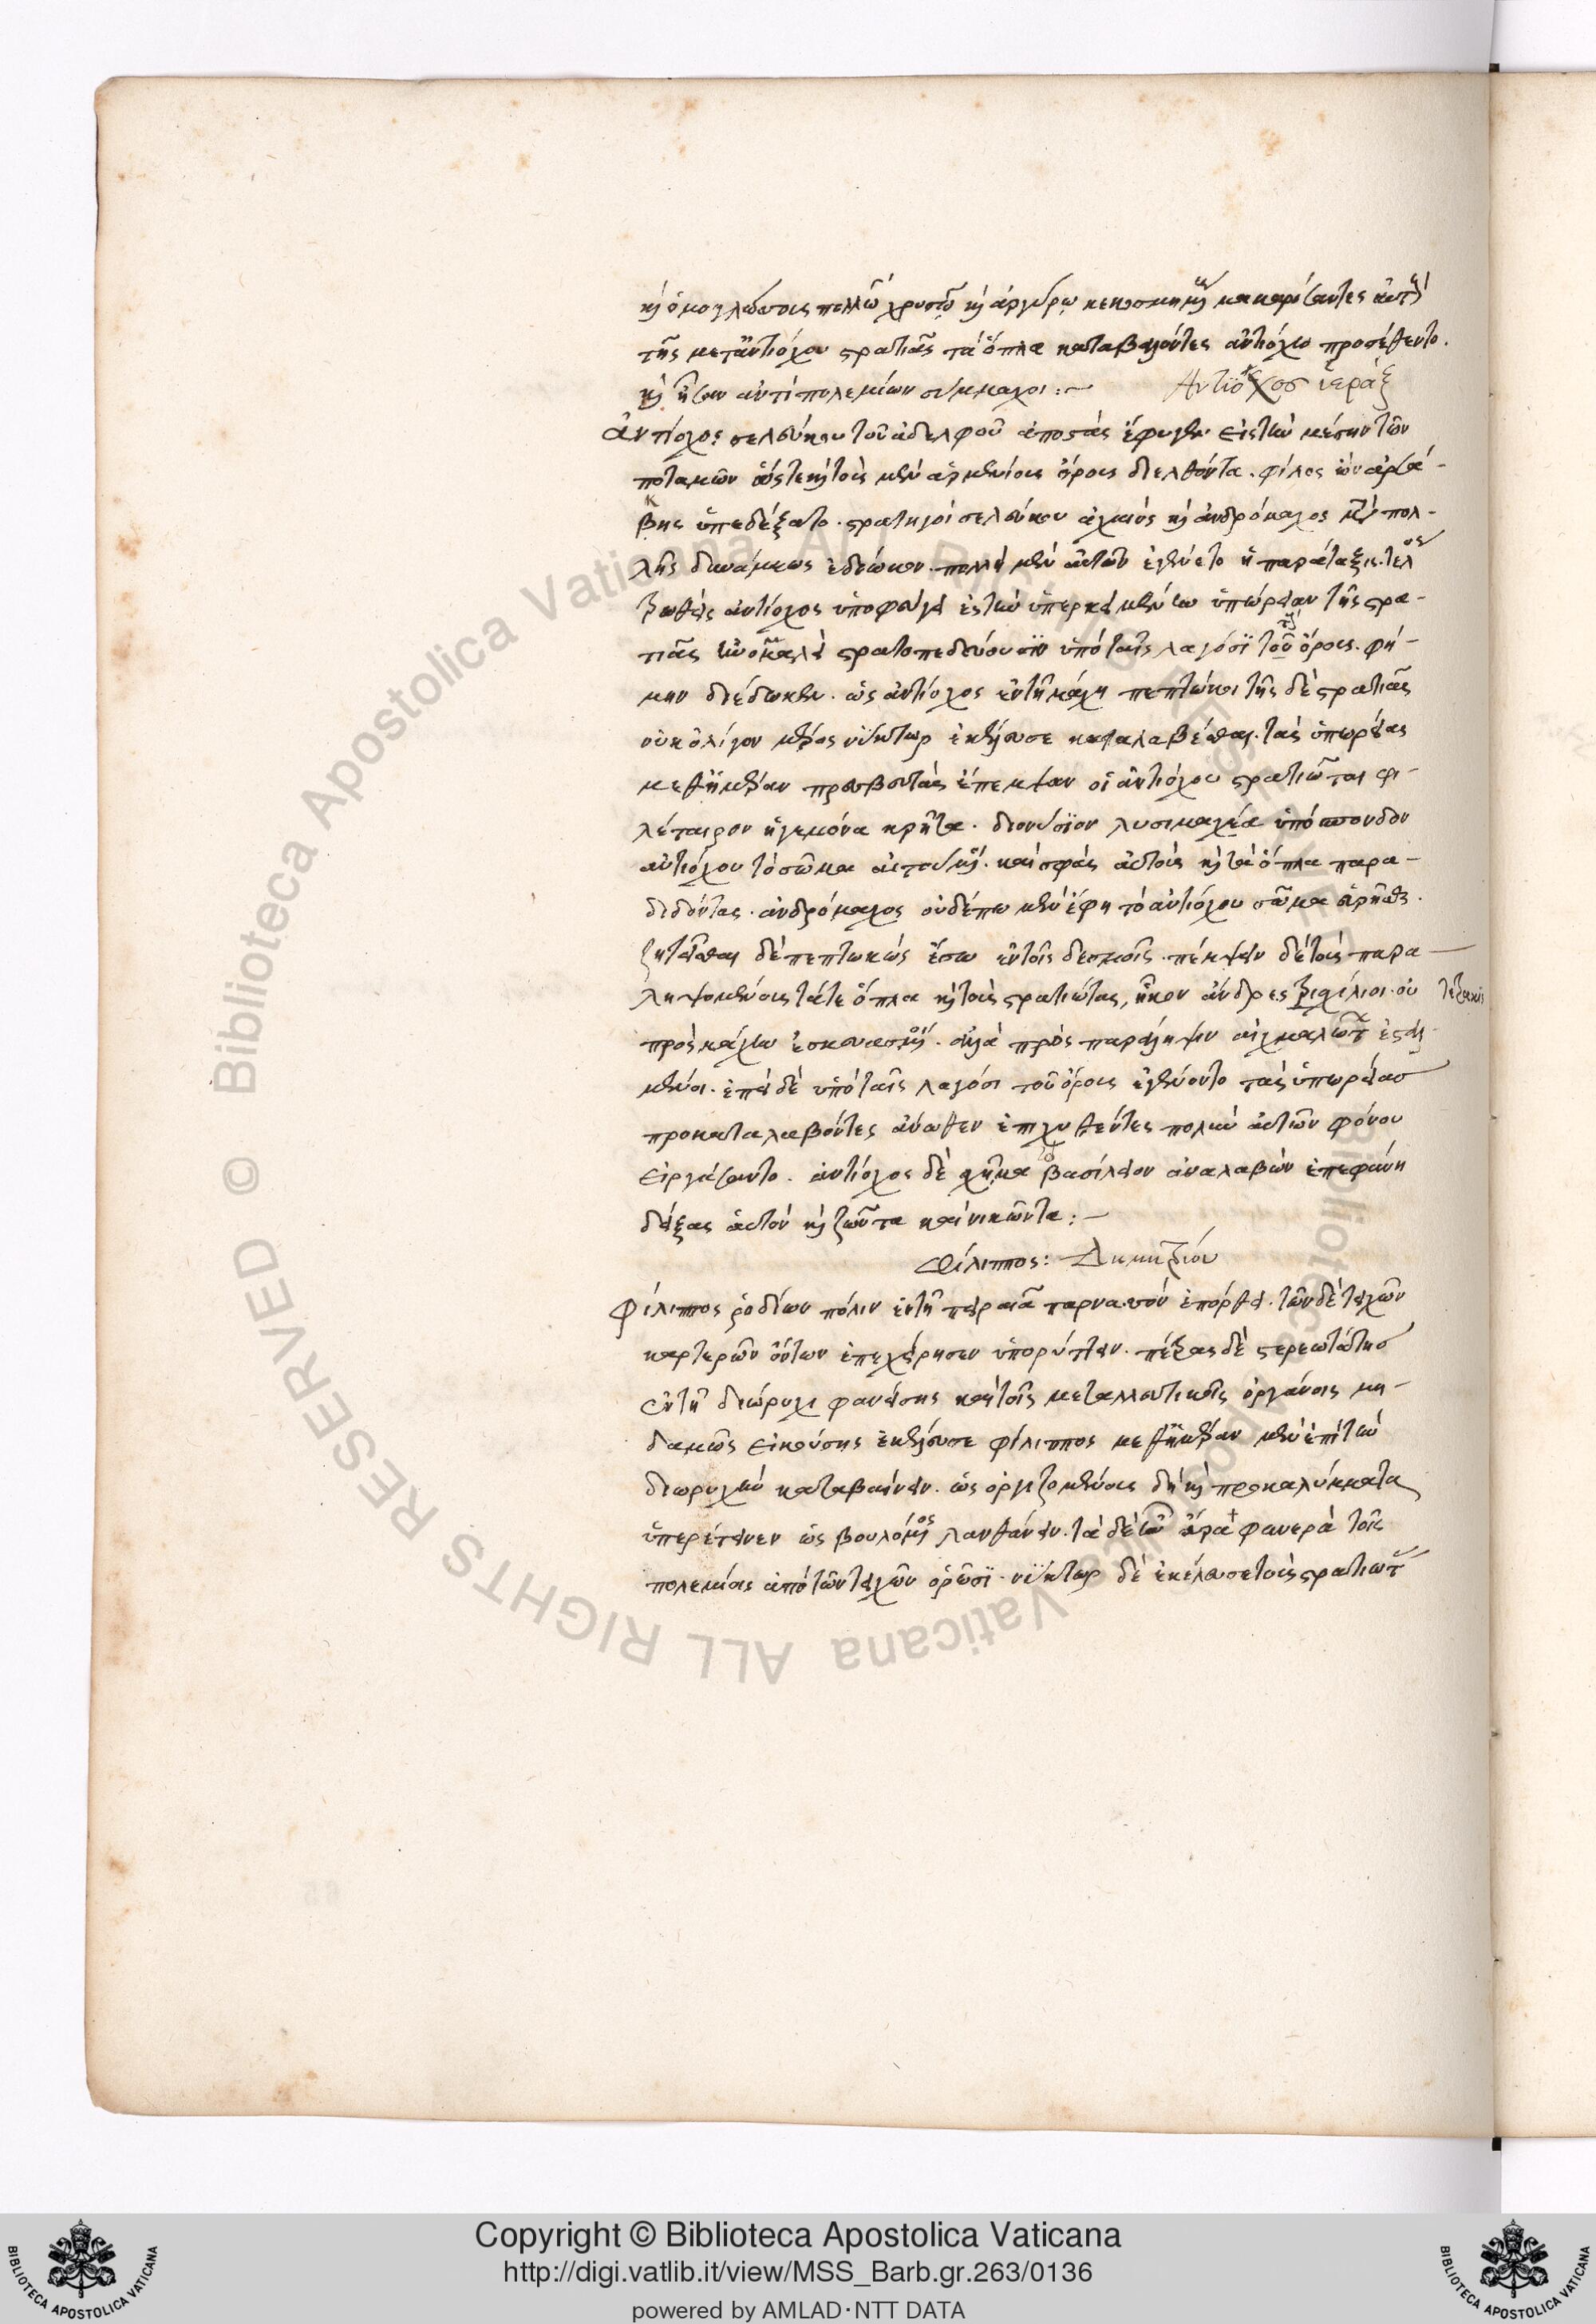 κὶ ὁμογλώσσοις πολλῶ χρυσῶ κὶ ἀργύρω κεκοσμημένοις μακαρίσαντες αὐτοὺς
τῆς μετ' ἀντιόχου στρατιᾶς τὰ ὅπλα καταβαλόντες ἀντιόχω προσέθεντο.
κὶ ἦσαν ἀντὶ πολεμίων σύμμαχοι :~ Αντίοχοσ ἱεράξ
ἀντίοχος σελεύκου τοῦ ἀδελφοῦ ἀποστὰς ἔφυγεν εἰς τὴν μέσην τῶν
ποταμῶν ὥς τε κὶ τοὺς μὲν ἀρμενίους ὄρους διελθόντα. φίλος ὢν ἀρσά-
βης ὑπεδέξατο. στρατηγοὶ σελεύκου ἀχαιὸς κὶ ἀνδρόμαχος μετὰ πολ-
λῆς δυνάμεως ἐδίωκον. πολλὴ μὲν αὐτῶν ἐγένετο ἡ παράταξις. τέλος
τρωθεὶς ἀντίοχος ὑποφεύγει ἐς τὴν ὑπερκειμένην ὑπώρειαν τῆς στρα-
τιᾶς στρατοπεδεύουσιν ὑπὸ ταῖς λαγόσι τοῦ ὄρους. φή-
μην διέδωκεν. ὡς ἀντίοχος ἐν τῆ μάχη πεπτώκοι τῆς δὲ στρατιᾶς
οὐκ ὀλίγον μέρος νύκτωρ ἐκέλευσε καταλαβέσθαι. τὰς ὑπωρείας
μεθ' ἡμέραν πρεσβευτὰς ἔπεμψαν οἱ ἀντιόχου στρατιῶται φι-
λέταιρον ἡγεμόνα κρῆτα. διονύσιον λυσιμαχέα ὑπόσπονδον
ἀντιόχου τὸ σῶμα αἰτούμενοι. καὶ σφὰς αὐτοὺς κὶ τὰ ὅπλα παρα-
διδόντας. ἀνδρόμαχος οὐδέπω μὲν ἔφη τὸ ἀντιόχου σῶμα εὑρῆσθαι.
ζητεῖσθαι δὲ πεπτωκὼς ἔσω ἐν τοῖς δεσμοῖς. πέμψειν δὲ τοὺς παρα-
ληψομένους τά τε ὅπλα κὶ τοὺς στρατιώτας, ἧκον ἄνδρες τρισχίλιοι. οὐ τετρακις
πρὸς μάχην ἐσκευασμένοι. ἀλλὰ πρὸς παράληψιν αἰχμαλώτων ἐσταλ-
μένοι. ἐπεὶ δὲ ὑπὸ ταῖς λαγόσι τοῦ ὄρους ἐγένοντο τὰς ὑπωρείασ
προκαταλαβόντες ἄνωθεν ἐπιχυθέντες πολὺν αὐτῶν φόνον
εἰργάσαντο. ἀντίοχος δὲ σχῆμα τὸ βασίλειον ἀναλαβὼν ἐπεφάνη
δείξας αὑτὸν κὶ ζῶντα καὶ νικῶντα :~
Φίλιππος: Δημητρίου
φίλιππος ῥοδίων πόλιν ἐν τῆ περαιᾶ παρνασσὸν ἐπόρθει. τῶν δὲ τειχῶν
καρτερῶν ὄντων ἐπεχείρησεν ὑπορύττειν. πέτρας δὲ στερεωτάτησ
ἐν τῆ διώρυχι φανείσης καὶ τοῖς μεταλλευτικοῖς ὀργάνοις μη-
δαμῶς εἰκούσης ἐκέλευσε φίλιππος μεθ' ἡμέραν μὲν ἐπὶ τὴν
διωρυχὴν καταβαίνειν. ὡς ἐργαζομένους δὴ κὶ προκαλύμματα
ὑπερέτεινεν ὡς βουλόμενος λανθάνειν. τὰ δὲ ἦν ἄρα φανερὰ τοῖς
πολεμίοις ἀπὸ τῶν τειχῶν ὁρῶσι. νύκτωρ δὲ ἐκέλευσε τοὺς στρατιώτας
Copyright © Biblioteca Apostolica Vaticana
http://digi.vatlib.it/view/MSS_Barb.gr.263/0136
powered by AMLAD·NTT DATA